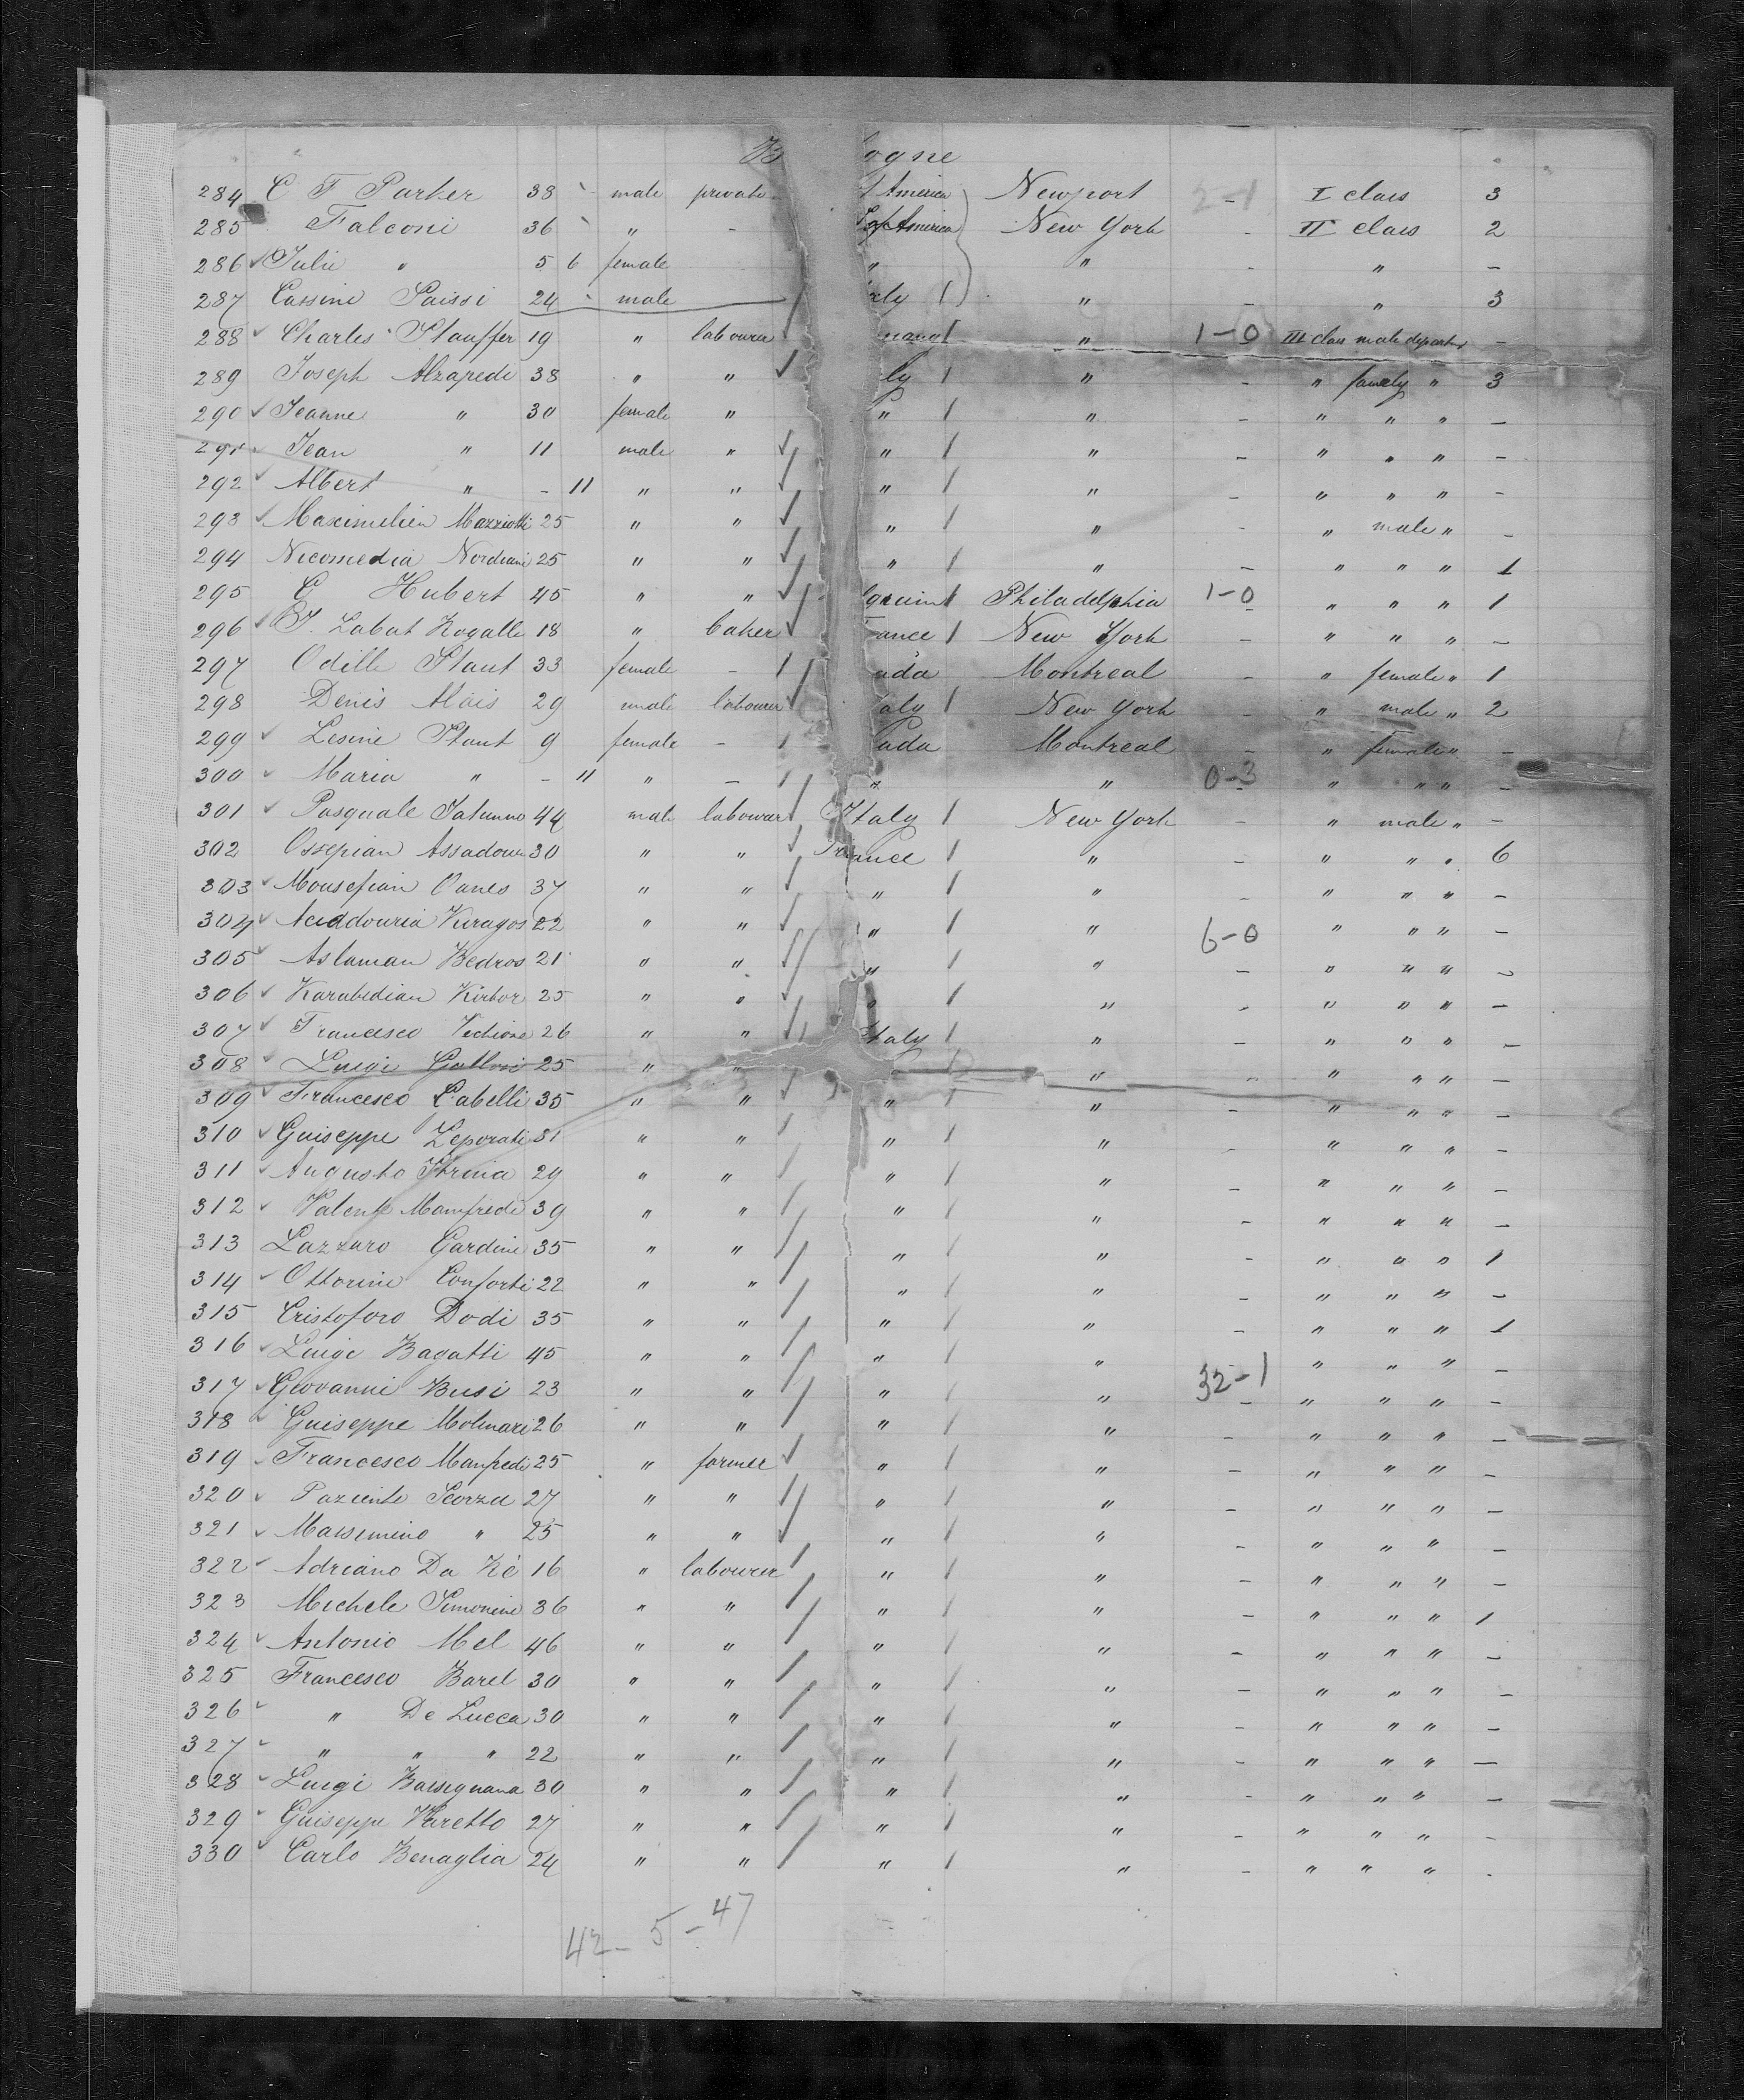 B ogne
284 C F Parker 38 male private America Newport 2-1 - I class 3
285 Falconi 36 " - America New York - II class 2
286 Julie " 5 6 female " " - " -
287 Cassine Paissi 24 male aly " - " 3
288 Charles Stauffer 19 " labourer many " 1-0 III class male depart -
289 Joseph Alzapedi 38 " " ly " - " family " 3
290 Jeanne " 30 female " " " - " " " -
291 Jean " 11 male " " " - " " " -
292 Albert " - 11 " " " " - " " " -
293 Maximilien Mazziotti 25 " " " " - " male " -
294 Nicomedia Nordiani 25 " " " " - " " " 1
295 C Hubert 45 " " Philadelphia 1-0 - " " " 1
296 J. Labat Rogalle 18 " baker ance New York - " " " -
297 Odille Plant 33 female - ada Montreal - " female " 1
298 Denis Alais 29 male labourer aly New York - " male " 2
299 Lesine Plant 9 female - ada Montreal - " female " -
300 Maria " - 11 " - " " 0-3 - " " " -
301 Pasquale Iatunno 44 male labourer Italy New York - " male " -
302 Ossepian Assadour 30 " " France " - " " " 6
303 Mousefian Oanes 37 " " " " - " " " -
304 Acaddouria Kiragos 22 " " " " 6-0 " " " -
305 Aslaman Bedros 21 " " " " - " " " -
306 Karabedian Kirbor 25 " " " " - " " " -
307 Francesco Vechione 26 " " Italy " - " " " -
308 Luigi 25 " " " - " " " -
309 Francesco Labelli 35 " " " " - " " " -
310 Guiseppe Leporati 31 " " " " - " " " -
311 Augusto 29 " " " " - " " " -
312 Valente Manfredi 39 " " " " - " " " -
313 Lazzaro Gardini 35 " " " " " " " 1
314 Ottorine Conforti 22 " " " " - " " " -
315 Cristoforo Dodi 35 " " " " - " " " 1
316 Luigi Bagatti 45 " " " " " " " -
317 Giovanni Busi 23 " " " " 32-1 - " " " -
318 Guiseppe Molinari 26 " " " " - " " " -
319 Francesco Manfredi 25 " farmer " " - " " " -
320 Paziente Scorza 27 " " " " - " " " -
321 Massimino " 25 " " " " - " " " -
322 Adriano Da Ré 16 " labourer " " - " " " -
323 Michele Simonini 36 " " " " - " " " 1
324 Antonio Mel 46 " " " " - " " " -
325 Francesco Barel 30 " " " " - " " " -
326 " De Lucca 30 " " " " - " " " -
327 " " " 22 " " " " - " " " -
328 Luigi Bassignana 30 " " " " - " " " -
329 Guiseppe Varetto 27 " " " " - " " " -
330 Carlo Benaglia 24 " " " " - " " " -
42 - 5 - 47